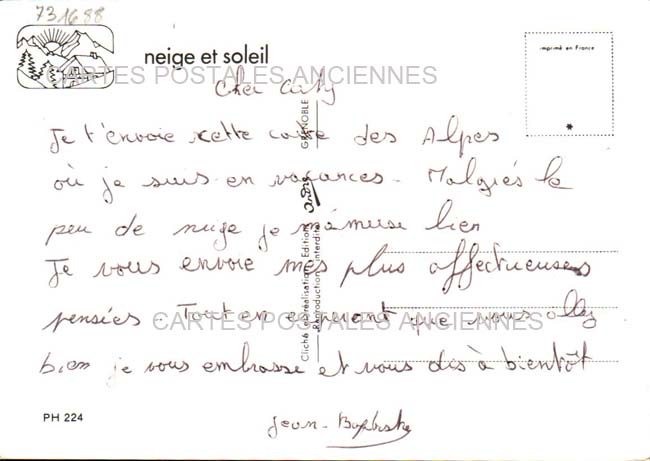 731688
neige et soleil
imprimé en France
*
CARTES POSTALES ANCIENNES
Cher
Je t'envoie cette carte des Alpes
où je suis en vacances - Malgrés le
peu de neige je m'amuse bien
Je vous envoie mes plus affectueuses
pensées - Tout en esperant que vous allez
bien je vous embrasse et vous dis à bientôt
Jean-Baptiste
CARTES POSTALES ANCIENNES
Cliché et réalisation Editions André GRENOBLE
Reproduction interdite
PH 224